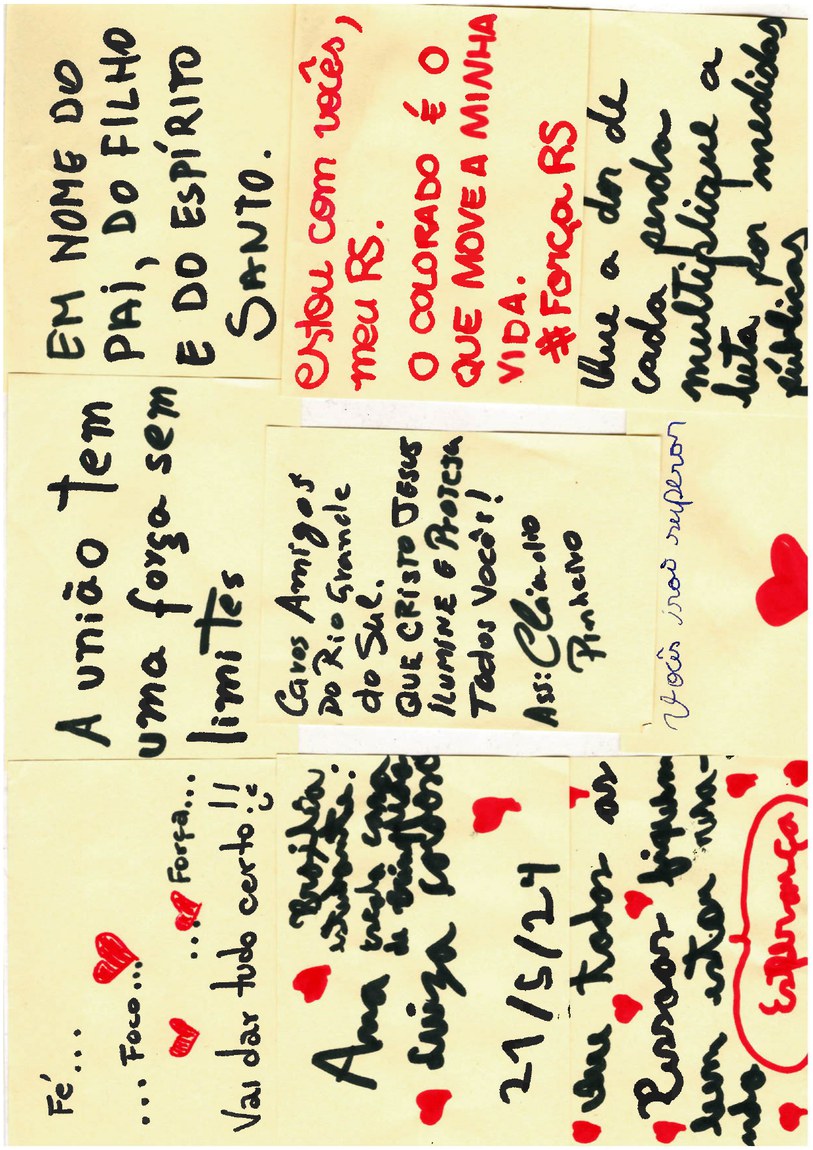 Fé...
...Foco...
...Força...
Vai dar tudo certo!!
A união tem
uma força sem
limites
EM NOME DO
PAI, DO FILHO
E DO ESPÍRITO
SANTO.
Brasília
estudante.
Ana
Luiza
21/5/24
Caros Amigos
DO Rio Grande
do Sul.
QUE CRISTO JESUS
ILUMINE E PROTEJA
Todos Vocês!
Ass: Claudio
Pinheiro
estou com vocês,
meu RS.
O COLORADO É O
QUE MOVE A MINHA
VIDA.
#Força RS
Que todas as
Pessoas fiquem
bem
Esperança
Vocês irão superar
Que a dor de
cada perda
multiplique a
luta por medidas
públicas